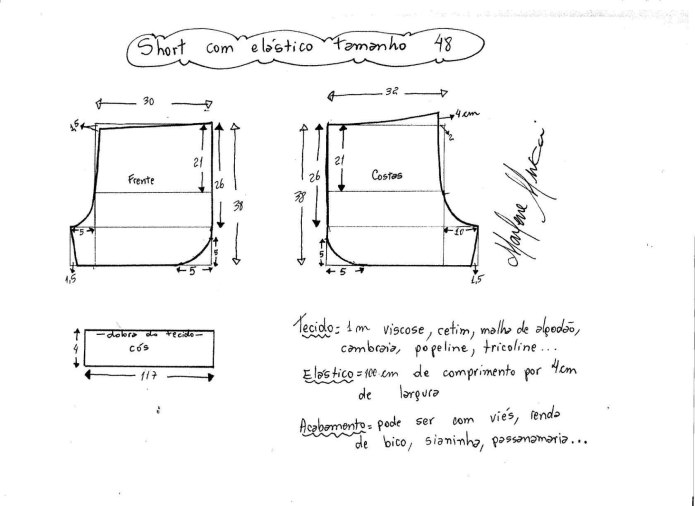 Short com elástico tamanho 48
30
32
1,5
4 cm
2
21
26
38
Frente
38
26
21
Costas
5
5
5
1,5
5
5
10
1,5
Marlene Mukai
—dobra do tecido—
cós
4
117
Tecido = 1 m viscose, cetim, malha de algodão,
cambraia, popeline, tricoline...
Elástico = 100 cm de comprimento por 4 cm
de largura
Acabamento = pode ser com viés, renda
de bico, sianinha, passanamaria...